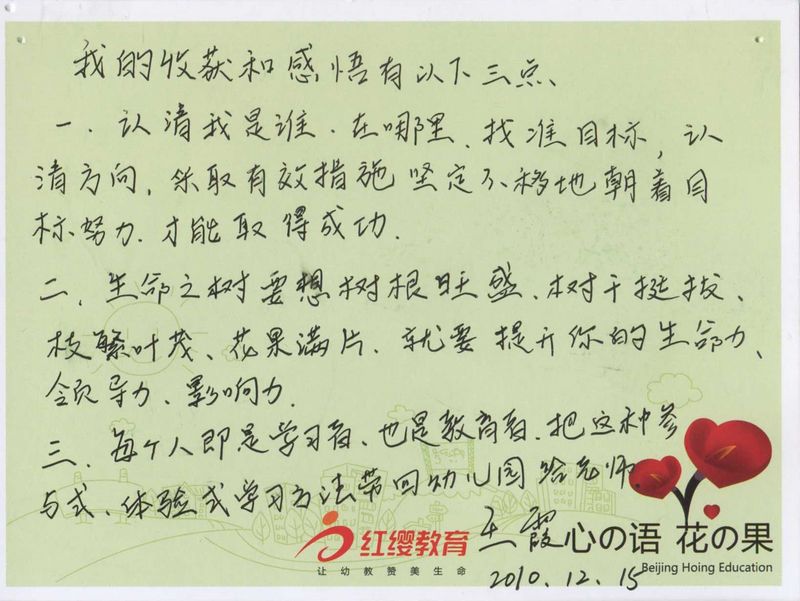 我的收获和感悟有以下三点、
一、认清我是谁、在哪里、找准目标，认
清方向，采取有效措施坚定不移地朝着目
标努力.才能取得成功.
二、生命之树要想树根旺盛、树干挺拔、
枝繁叶茂、花果满片.就要提升你的生命力、
领导力、影响力.
三、每个人即是学习者、也是教育者、把这种参
与式、体验式学习方法带回幼儿园给老师
王霞
红缨教育
让幼教赞美生命
心の语 花の果
Beijing Hoing Education
2010.12.15